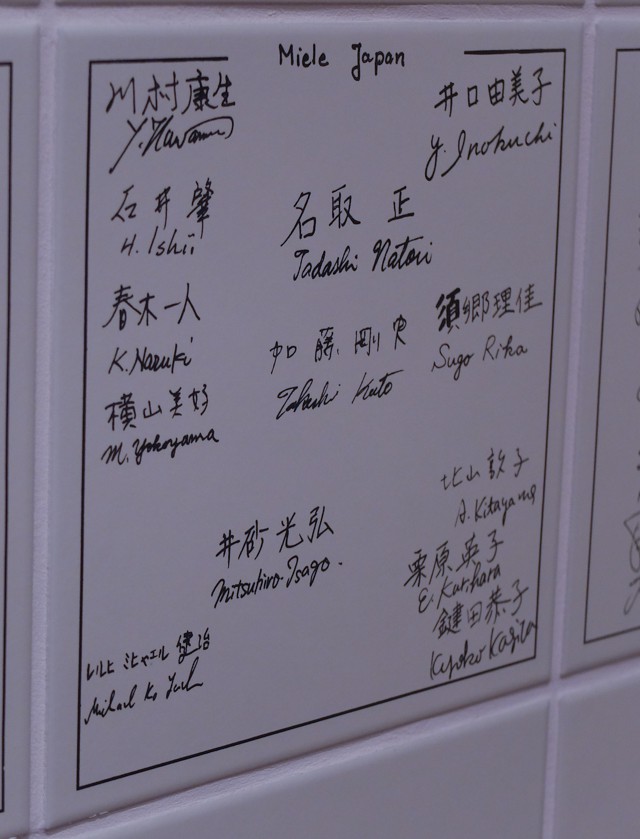 Miele Japan
川村康生
井口由美子
Y. Inokuchi
石井肇
H. Ishii
名取 正
Tadashi Natori
春木一人
K. Haruki
加藤剛史
Takashi Kato
須郷理佳
Sugo Rika
横山美好
M. Yokoyama
北山敦子
A. Kitayama
井砂光弘
Mitsuhiro Isago.
栗原英子
E. Kurihara
鍵田恭子
Kyoko Kagita
ミヒャエル 健治
Michael K.